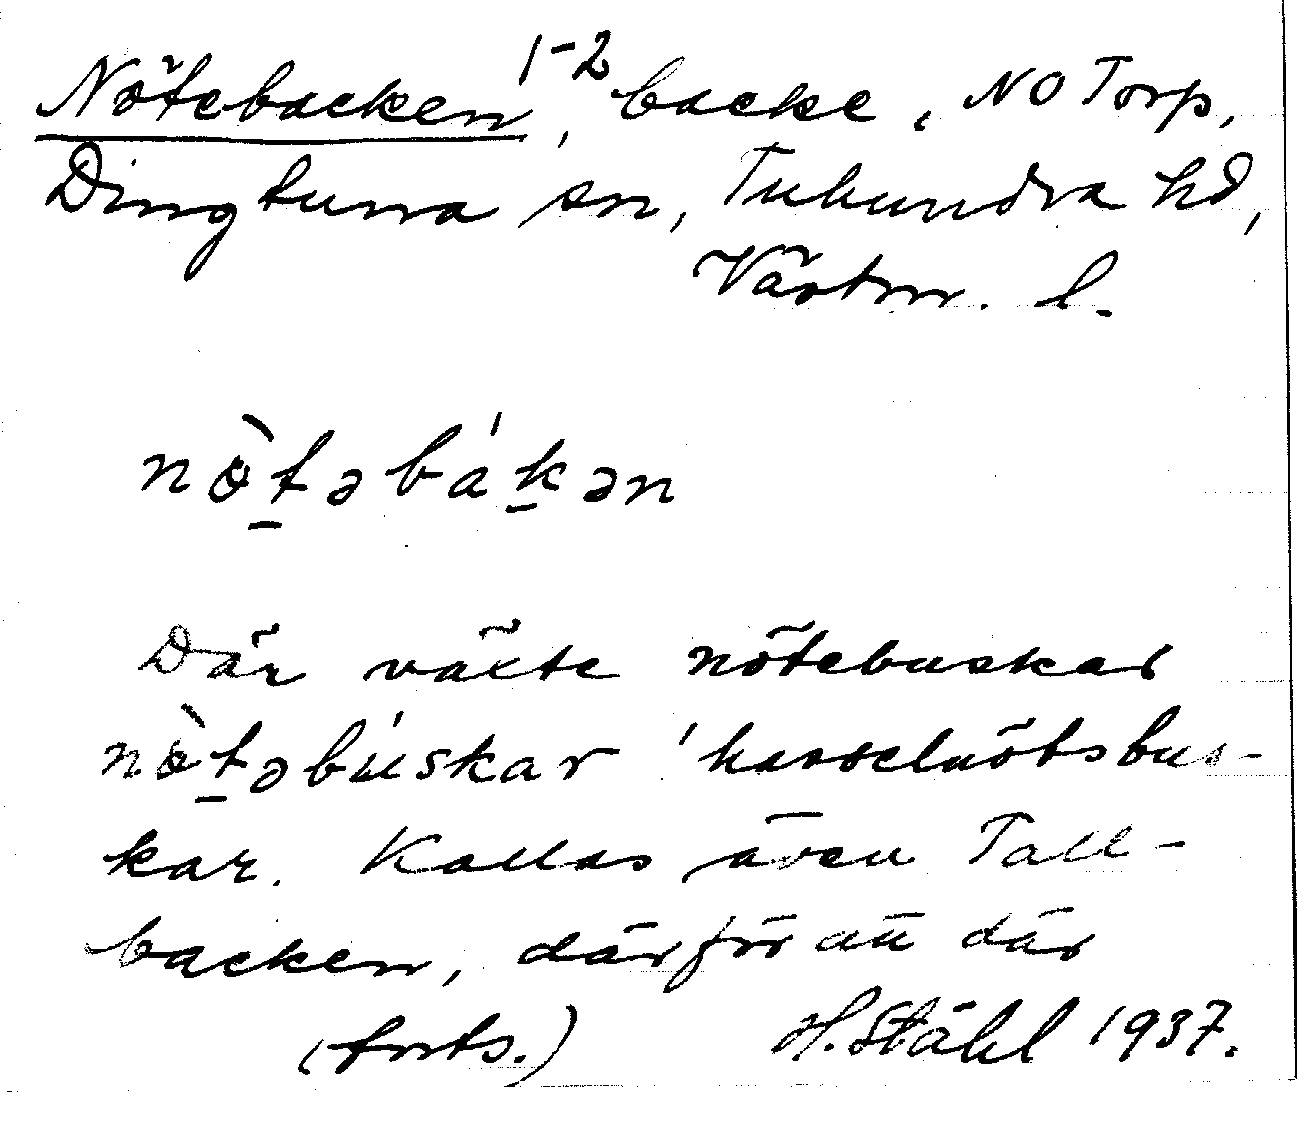 Nötebacken 1-2, backe, NO Torp,
Dingtuna sn, Tuhundra hd,
Västm. l.
nò̱təbákən
Där växte nötebuskar
nòtəbúskar 'hasselnötsbus-
kar. Kallas även Tall-
backen, därför att där
(forts.) H. Ståhl 1937.